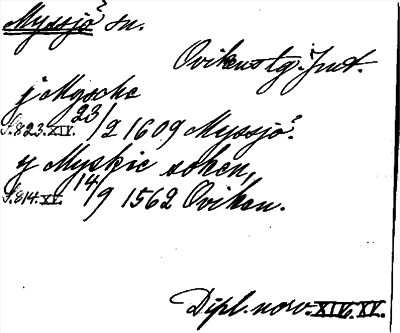 Myssjö sn.
Ovikens tg. Jmt.
j Myscho
S. 823. XIV. 23/2 1609 Myssjö.
y Myskie soken,
S. 814. XV. 14/9 1562 Oviken.
Dipl. norv. XIV. XV.